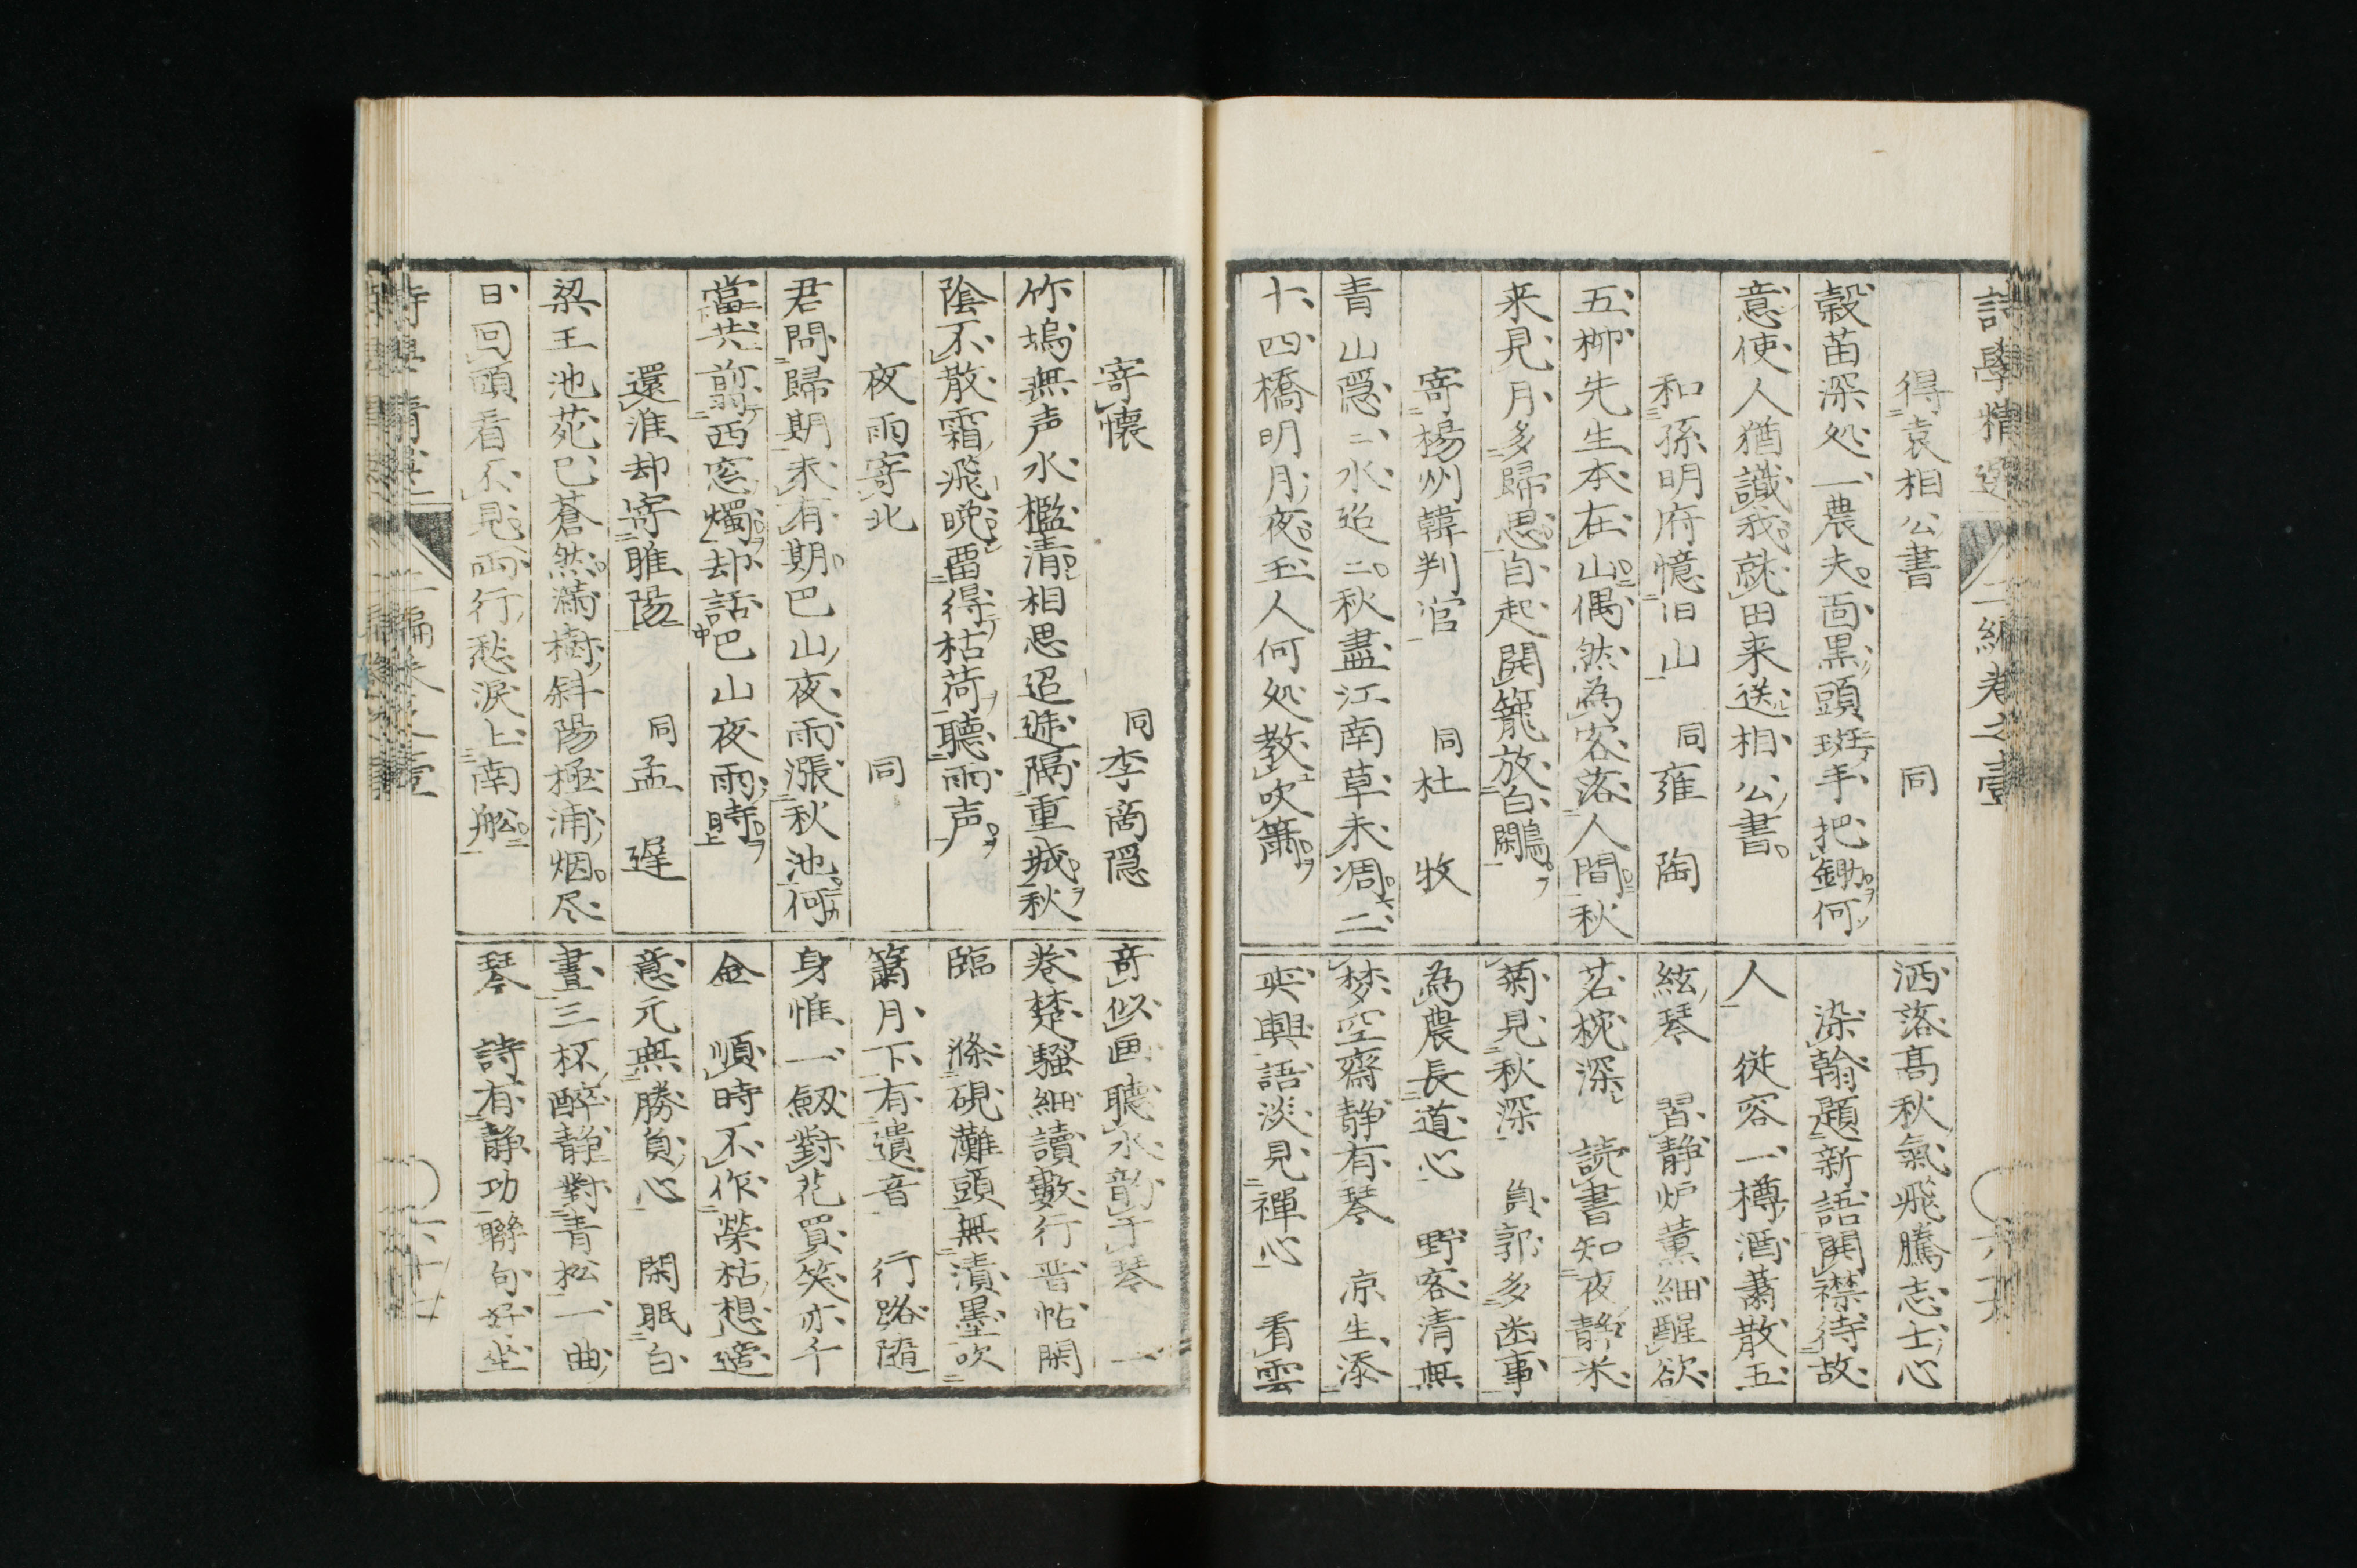 得袁相公書　同
穀苗深処一農夫面黒頭斑手把鋤何
意使人猶識我就田来送相公書
和孫明府憶旧山　同雍陶
五柳先生本在山偶然為客落人間秋
来見月多歸思自起開籠放白鷴
寄楊州韓判官　同杜牧
青山隠二水迢二秋盡江南草未凋二
十四橋明月夜玉人何処教吹簫
洒落高秋氣飛騰志士心
染翰題新語開襟待故
人　従容一樽酒蕭散五
絃琴　習静炉薫細醒欲
茗椀深　読書知夜静米
菊見秋深　負郭多歯事
為農長道心　野客清無
梦空齋静有琴　凉生添
爽興語淡見禪心　看雲
寄懐　同李商隠
竹塢無声水檻清相思迢遞隔重城秋
陰不散霜飛晩畱得枯荷聽雨声
夜雨寄北　同
君問歸期未有期巴山夜雨漲秋池何
當共剪西窓燭却話巴山夜雨時
還淮却寄睢陽　同孟遅
梁王池苑已蒼然満樹斜陽極浦烟尽
日回頭看不見両行愁涙上南舩
奇似画聽水韵于琴　一
巻楚騒細讀數行晋帖閑
臨　滌硯灘頭無漬墨吹
簫月下有遺音　行路随
身惟一劔對花買笑亦千
金　順時不作榮枯想適
意元無勝負心　閑眠白
晝三杯醉静對青松一曲
琴　詩有静功聯句好坐